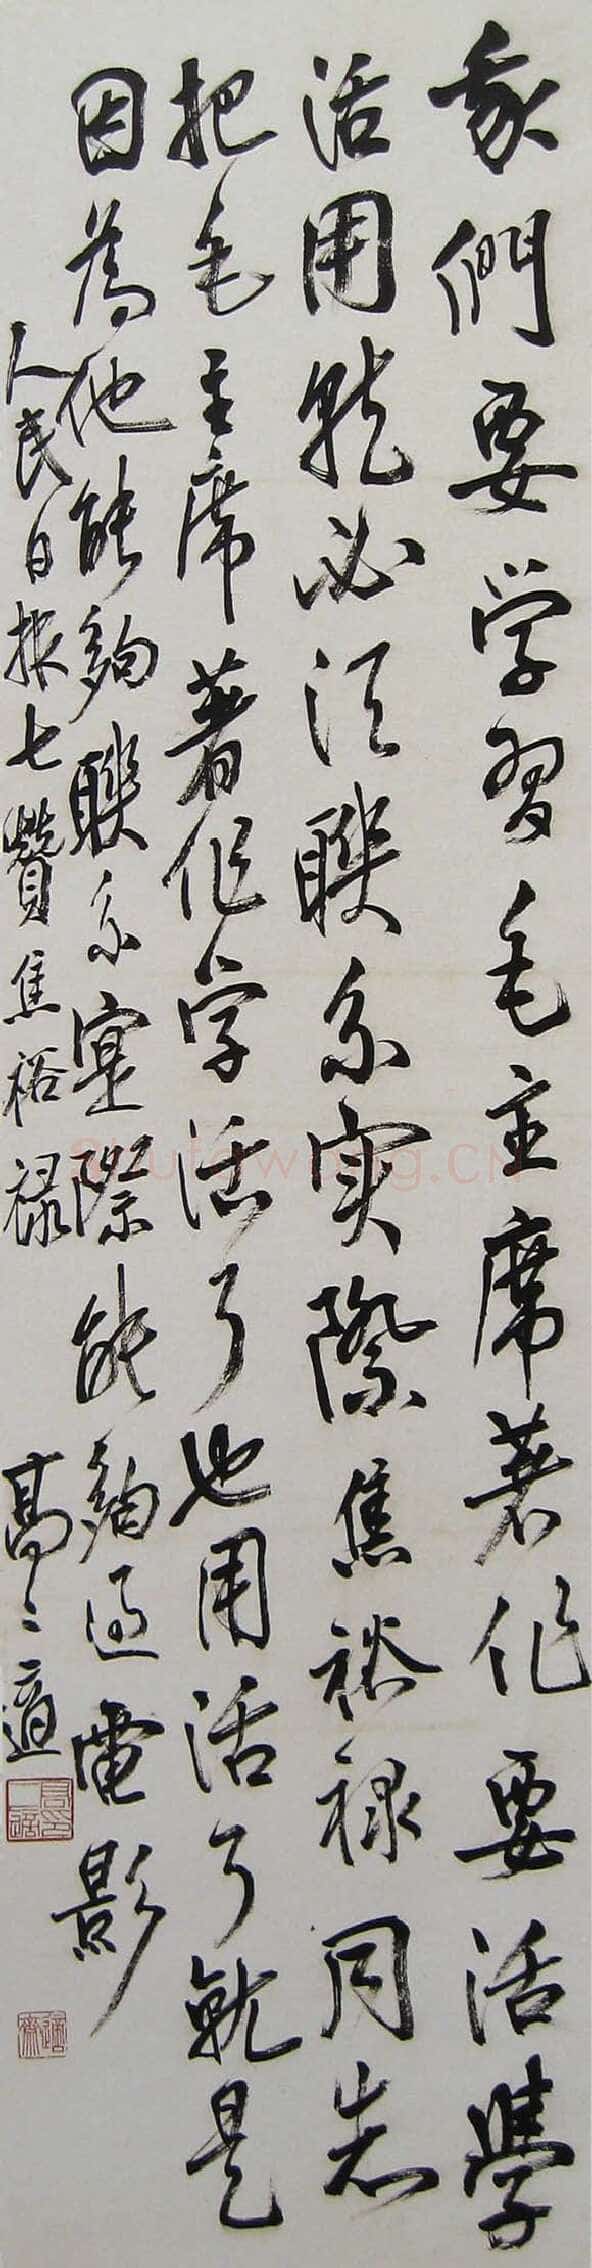 我們要学習毛主席著作要活學
活用就必須聯系实際焦裕禄同志
把毛主席著作学活了也用活了就是
因為他能夠聯系實際能夠過電影
人民日報七贊焦裕禄
高二適